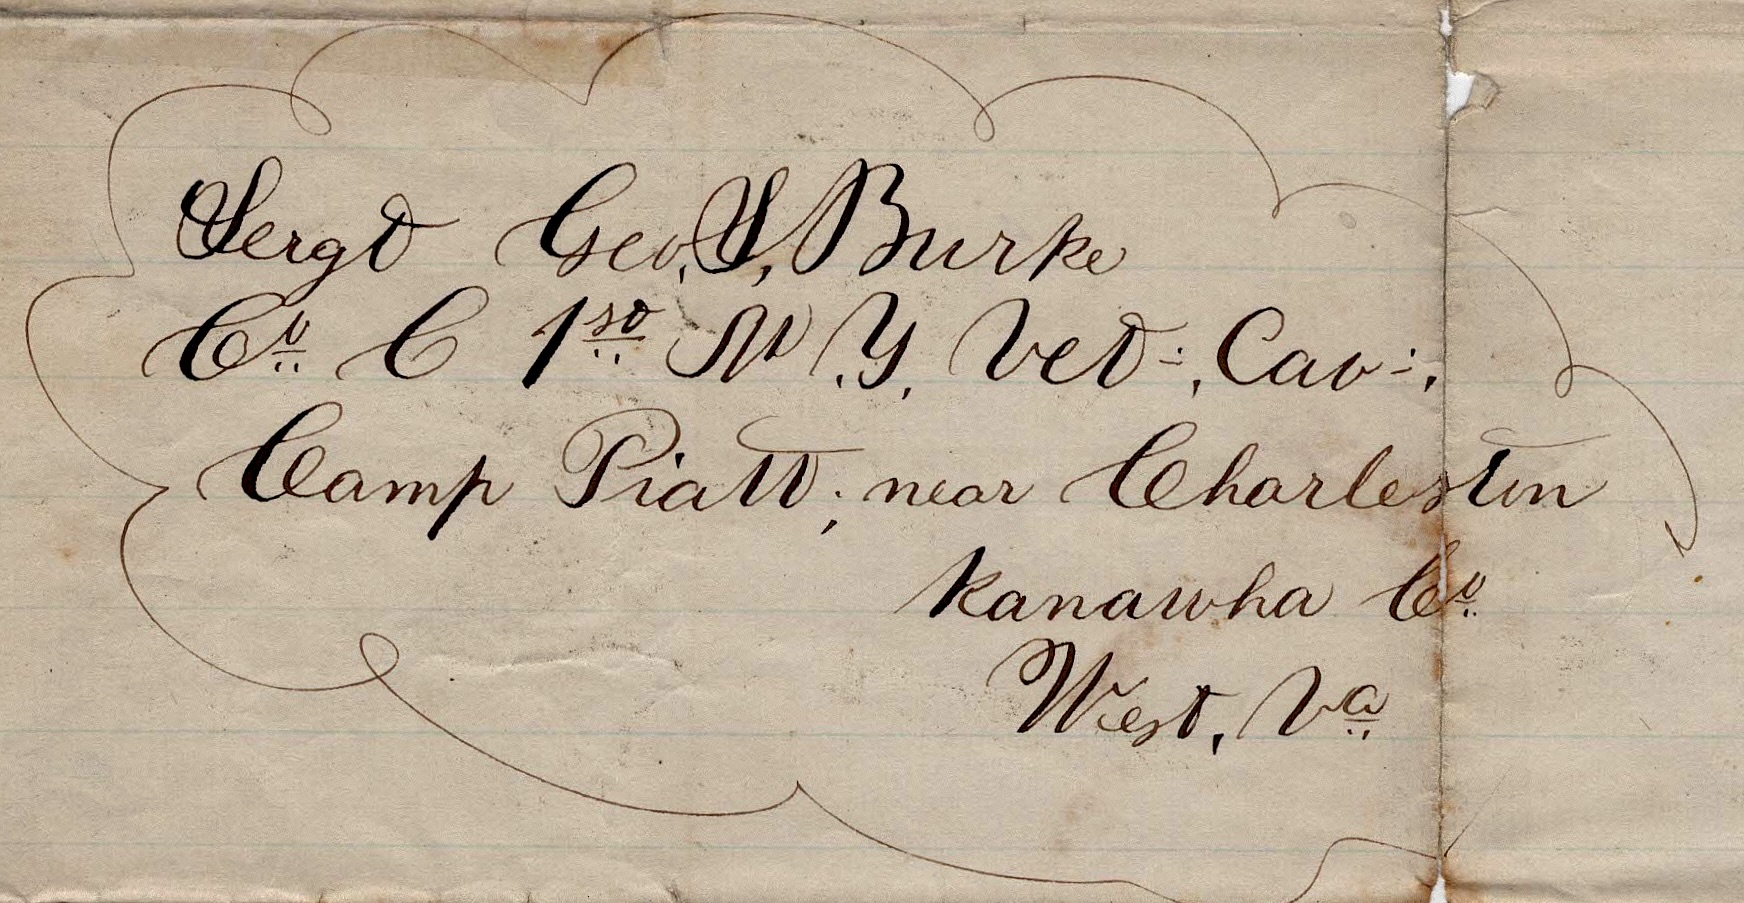 Sergt Geo. S, Burke
Co C 1st N.Y. Vet:, Cav:,
Camp Piatt; near Charleston
Kanawha Co
West, Va